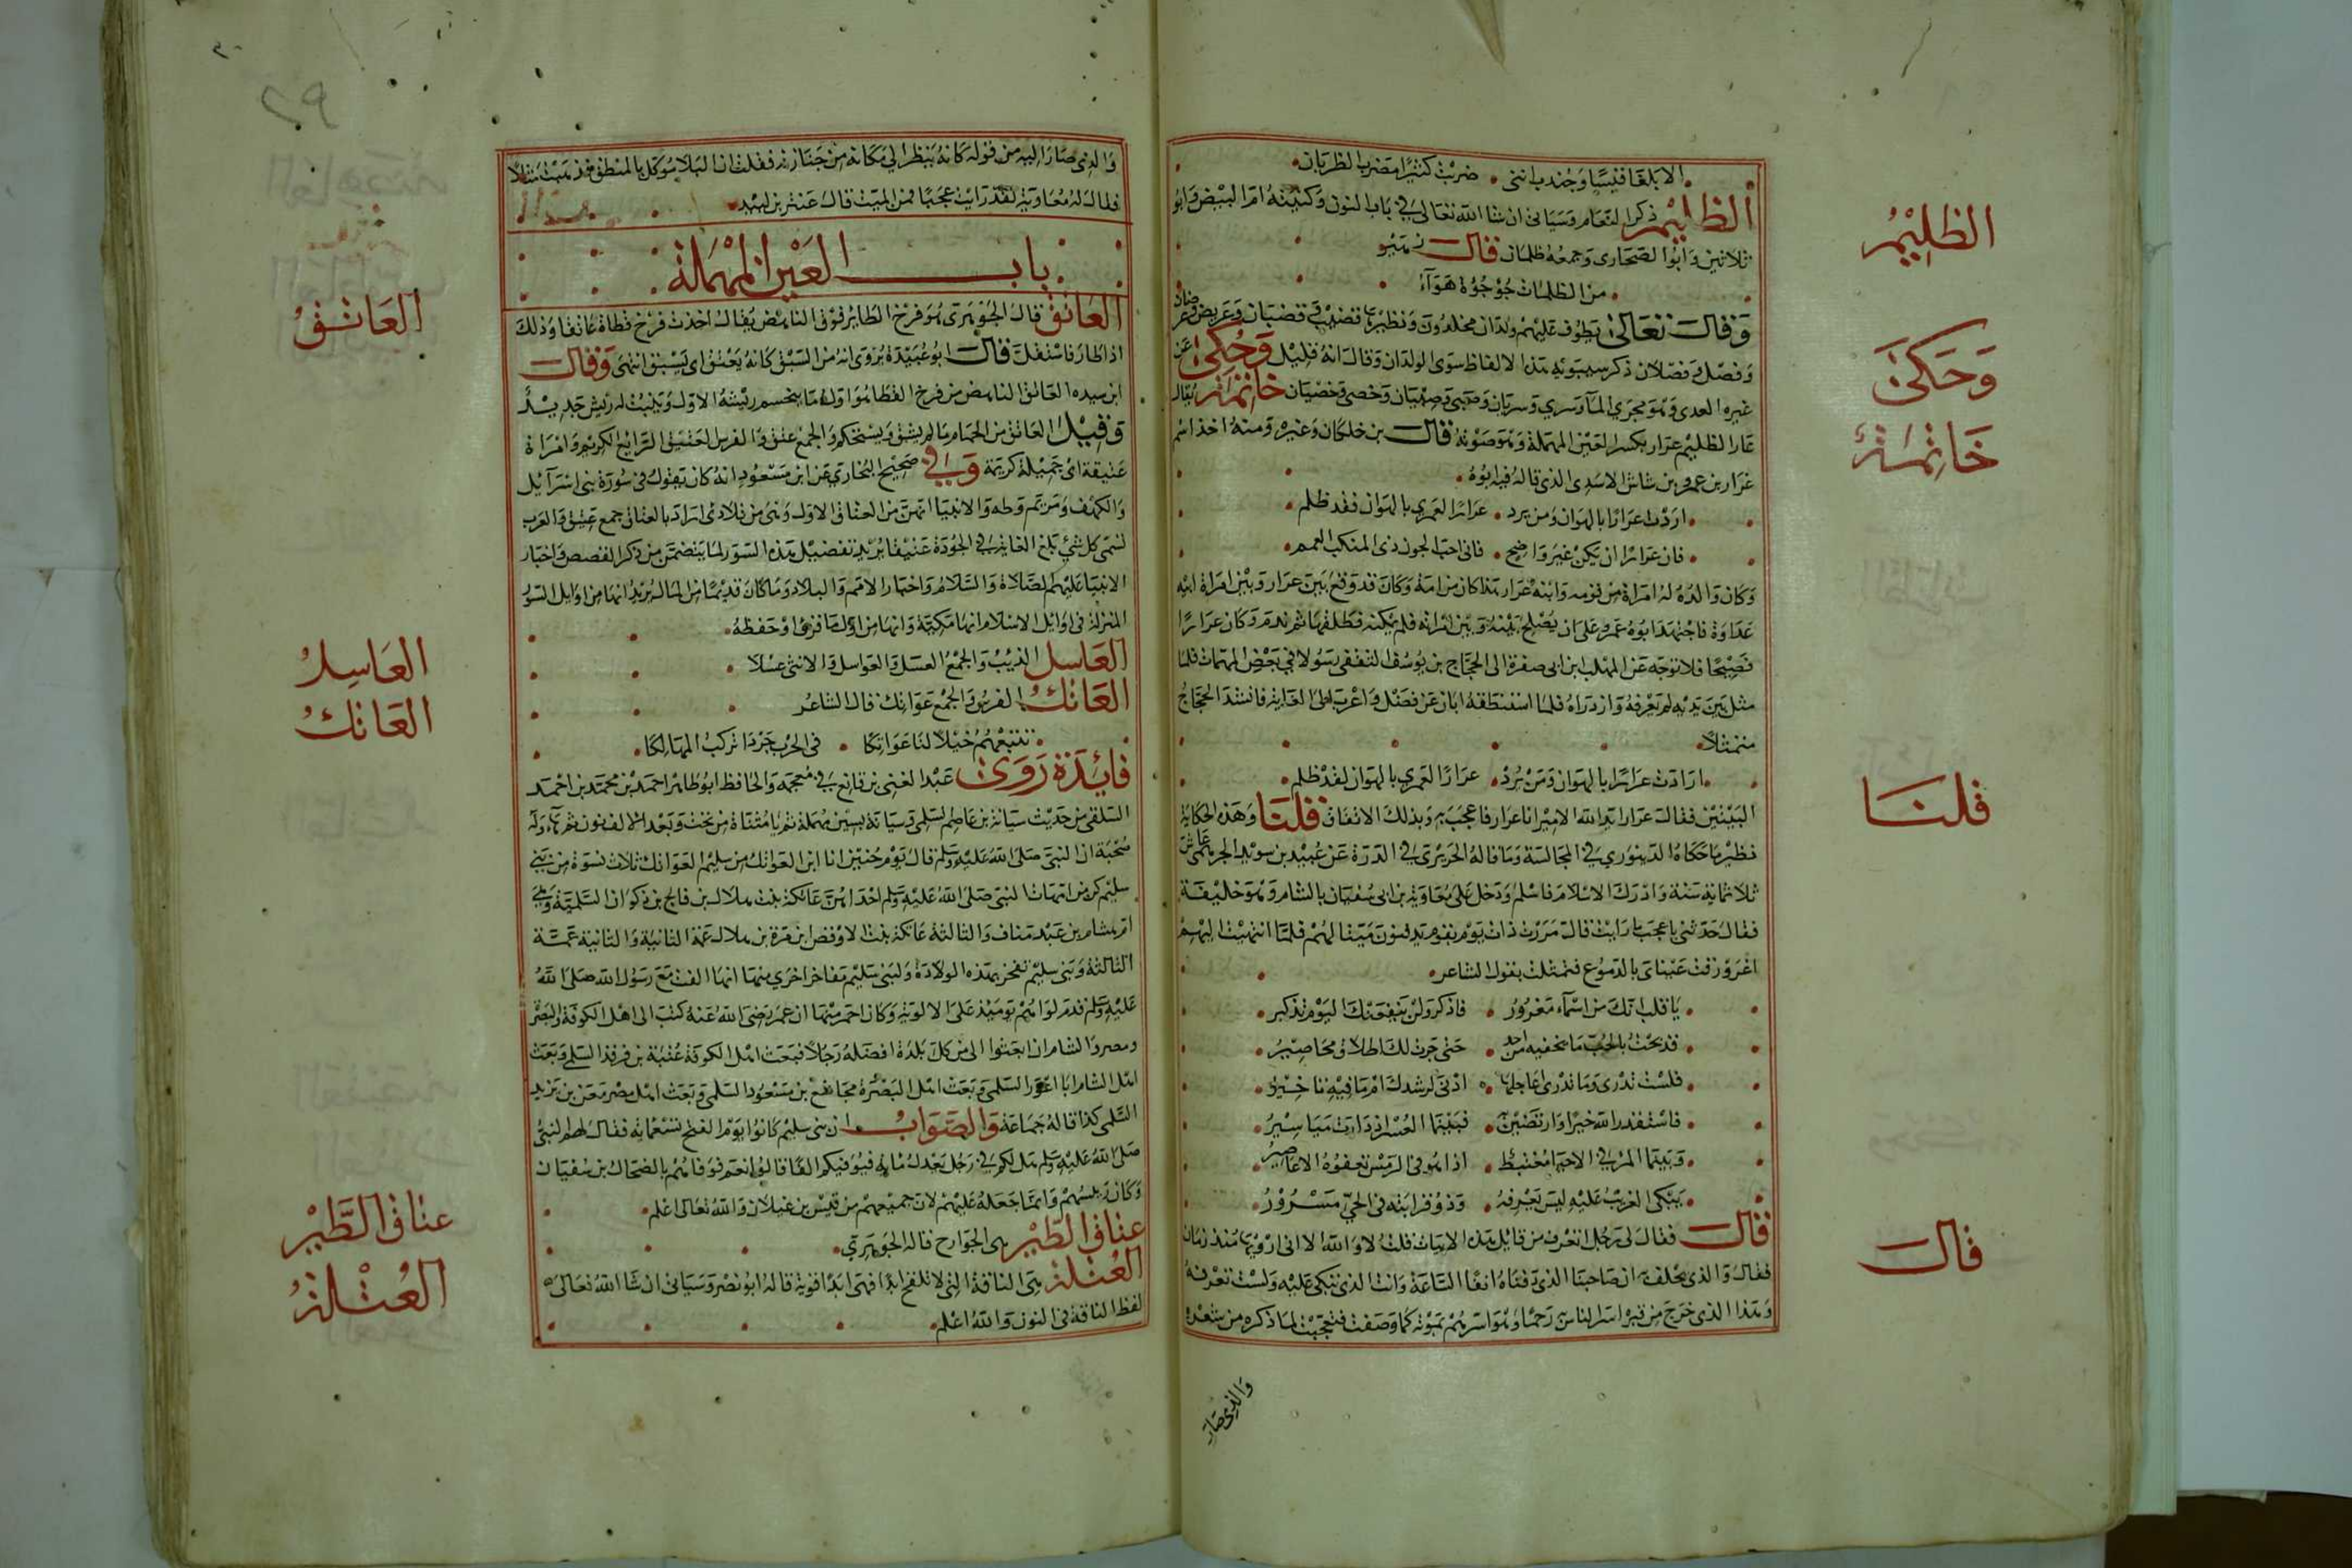 الا بلغا قيسا وجندب انني ضربت كثيرا مضرب الظربان
الظليم ذكر النعام وسياتي ان شا الله تعالى في باب النون وكنيته ام البيض وابو
ثلاثين وابو الصحارى وجمعه ظلمان قال زهير
من الظلمات جوجؤه هوآء
وقال تعالى يطوف عليهم ولدان مخلدون ونظيرها قضيب وقضبان وعريض وعرضان
وفصيل وفصلان ذكر سيبويه هذه الالفاظ سوى الولدان وقال انه قليل وحكى عن
غيره العدى وهو مجرى المآ وسري وسريان وصبي وصبيان وخصي وخصيان خاتمة يقال
عار الظليم عرار بكسر العين المهملة وهو صوته قال بن خلكان وغيره ومنه اخذ اسم
عرار بن عمرو بن شاش الاسدي الذي قال فيه ابوه
اردت عرارا بالهوان ومن يرد عرارا لعمري بالهوان فقد ظلم
فان عرارا ان يكن غير واضح فاني احب الجون ذى المنكب العمم
وكان والده له امراة من قومه وابنه عرار هذا كان من امة وكان قد وقع بين عرار وبين امراة ابيه
عداوة فاجتهد ابوه عمرو على ان يصلح بينه وبين امراته فلم يمكنه فطلقها ثم ندم وكان عرارا
فصيحا فلا توجه عن المهلب ابن ابي صفرة الى الحجاج بن يوسف الثقفي رسولا في بعض المهمات فلما
مثل بين يديه لم يعرفه وازدراه فلما استنطقه ابان عن فضل واعرب الى الغاية فانشد الحجاج
متمثلا
ارادت عرارا بالهوان ومن يرد عرارا لعمري بالهوان لقد ظلم
البيتين فقال عرار ايد الله الامير انا عرار فاعجب به وبذلك الاتفاق قلنا وهذه الحكاية
نظير ما حكاه الدينوري في المجالسة وما قاله الحريري في الدرة عن عبيد بن سويد الجرهمي عاش
ثلاثمائة سنة وادرك الاسلام فاسلم ودخل على معاوية بن ابي سفيان بالشام وهو خليفة
فقال حدثني باعجب ما رايت قال مررت ذات يوم بقوم يدفنون ميتا لهم فلما انتهيت اليهم
اغرورقت عيناي بالدموع فتمثلت بقول الشاعر
يا قلب انك من اسمآء مغرور فاذكر ولن ينفعنك اليوم تذكير
قد بحت بالحب ما تخفيه من احد حتى جرت لك اطلاقا محاضير
فلست تدري وما تدري اعاجلها ادنى لرشدك ام ما فيه تاخير
فاستقدر الله خيرا وارتضين به فبينما العسر اذ دارت مياسير
وبينما المرء في الاحيا مغتبط اذا هو في الرمس تعفوه الاعاصير
يبكي الغريب عليه ليس يعرفه وذو قرابته في الحي مسرور
قال فقال لي رجل اتعرف من قايل هذه الابيات قلت لا والله الا اني ارويها منذ زمان
فقال والذي يحلف به ان صاحبنا الذي دفناه انفا الساعة وانت الذي تبكي عليه ولست تعرفه
وهذا الذي خرج من قبره امس الناس رحما وهو اسرهم بموته كما وصفت فتعجبت لما ذكره من شعره
والذي صار
الظليم
وحكى
خاتمة
قلنا
قال
والذي صار اليه من قوله كانه ينظر الي مكانه من جنازته فقلت ان البلا موكل بالمنطق فذهبت مثلا
فقال له معاوية لقد رايت عجبا فمن الميت قال عنتر بن لبيد
باب العين المهملة
العاتق قال الجوهري هو فرخ الطائر فوق الناهض يقال اخذت فرخ قطاة عاتقا وذلك
اذا طار فاستقل قال ابو عبيدة نروى انه من السبق كانه يعتق اى يسبق انتهى وقال
ابن سيده العاتق الناهض من فرخ القطا هو اول ما ينحسر ريشه الاول وينبت له ريش جديد
وقيل العاتق من الحمام ما لم يسن ويستحكم والجمع عتق والفرس العتيق الرائع الكريم وامراة
عتيقة اى جميلة كريمة وفي صحيح البخاري عن ابن مسعود انه كان يقول في سورة بني اسرآئيل
والكهف ومريم وطه والانبيا انهن من العتاق الاول وهي من تلادى اراد بالعتاق جمع عتيق والعرب
تسمي كل شي بلغ الغاية في الجودة عتيقا يريد تفضيل هذه السور لما يتضمن من ذكر القصص واخبار
الانبيا عليهم الصلاة والسلام واخبار الامم والبلاد وما كان قديما من المال يريد انها من اوايل السور
المنزلة في اوائل الاسلام انها مكية وانها من اول ما قرئ او حفظه
العاسل الذيب والجمع العسل والعواسل والانثى عسلا
العاتك الفرس والجمع عواتك قال الشاعر
نتبعهم خيلا لنا عواتكا في الحرب جردا تركب المهالكا
فائدة روى عبد الغني بن قانع في معجمه والحافظ ابو طاهر احمد بن محمد بن احمد
السلفي من حديث سيابة بن عاصم السلمي وسيابة بسين مهملة ثم يا مثناة من تحت وبعد الالف نون ثم هآء وله
صحبة ان النبي صلى الله عليه وسلم قال يوم حنين انا ابن العواتك من سليم العواتك ثلاث نسوة من بني
سليم كن من امهات النبي صلى الله عليه وسلم احداهن عاتكة بنت هلال بن فالج بن ذكوان السلمية وهي
ام هاشم بن عبد مناف والثالثة عاتكة بنت الاوقص ابن مرة بن هلال عمة الثانية والثانية عمة
الثالثة وبني سليم تفخر بهذه الولادة ولبني سليم مفاخر اخرى منها انها الفت مع رسول الله صلى الله
عليه وسلم قدم لواهم يوميذ على الالوية وكان احمر منها ان عمر رضى الله عنه كتب الى اهل الكوفة والبصرة
ومصر والشام ان ابعثوا الى من كل بلدة افضله رجلا فبعث اهل الكوفة عتبة بن فرقد السلمي وبعث
اهل الشام ابا اعور السلمي وبعث اهل البصرة مجاشع بن مسعود السلمي وبعث اهل مصر معن بن يزيد
السلمي كذا قاله جماعة والصواب ان بني سليم كانوا يوم الفتح تسعمائة فقال لهم النبي
صلى الله عليه وسلم هل لكم في رجل يعدل مائة فيوفيكم الفا قالوا نعم فوفاهم بالضحاك بن سفيان
وكان رييسهم وانما جعله عليهم لان جميعهم من قيس بن غيلان والله تعالى اعلم
عتاق الطير هى الجوارح قاله الجوهري
العتلة هى الناقة التي لا تلقح ابدا فهى ابدا قوية قاله ابو نصر وسياتي ان شا الله تعالى
لفظ الناقة في النون والله اعلم
العاتق
العاسل
العاتك
عتاق الطير
العتلة